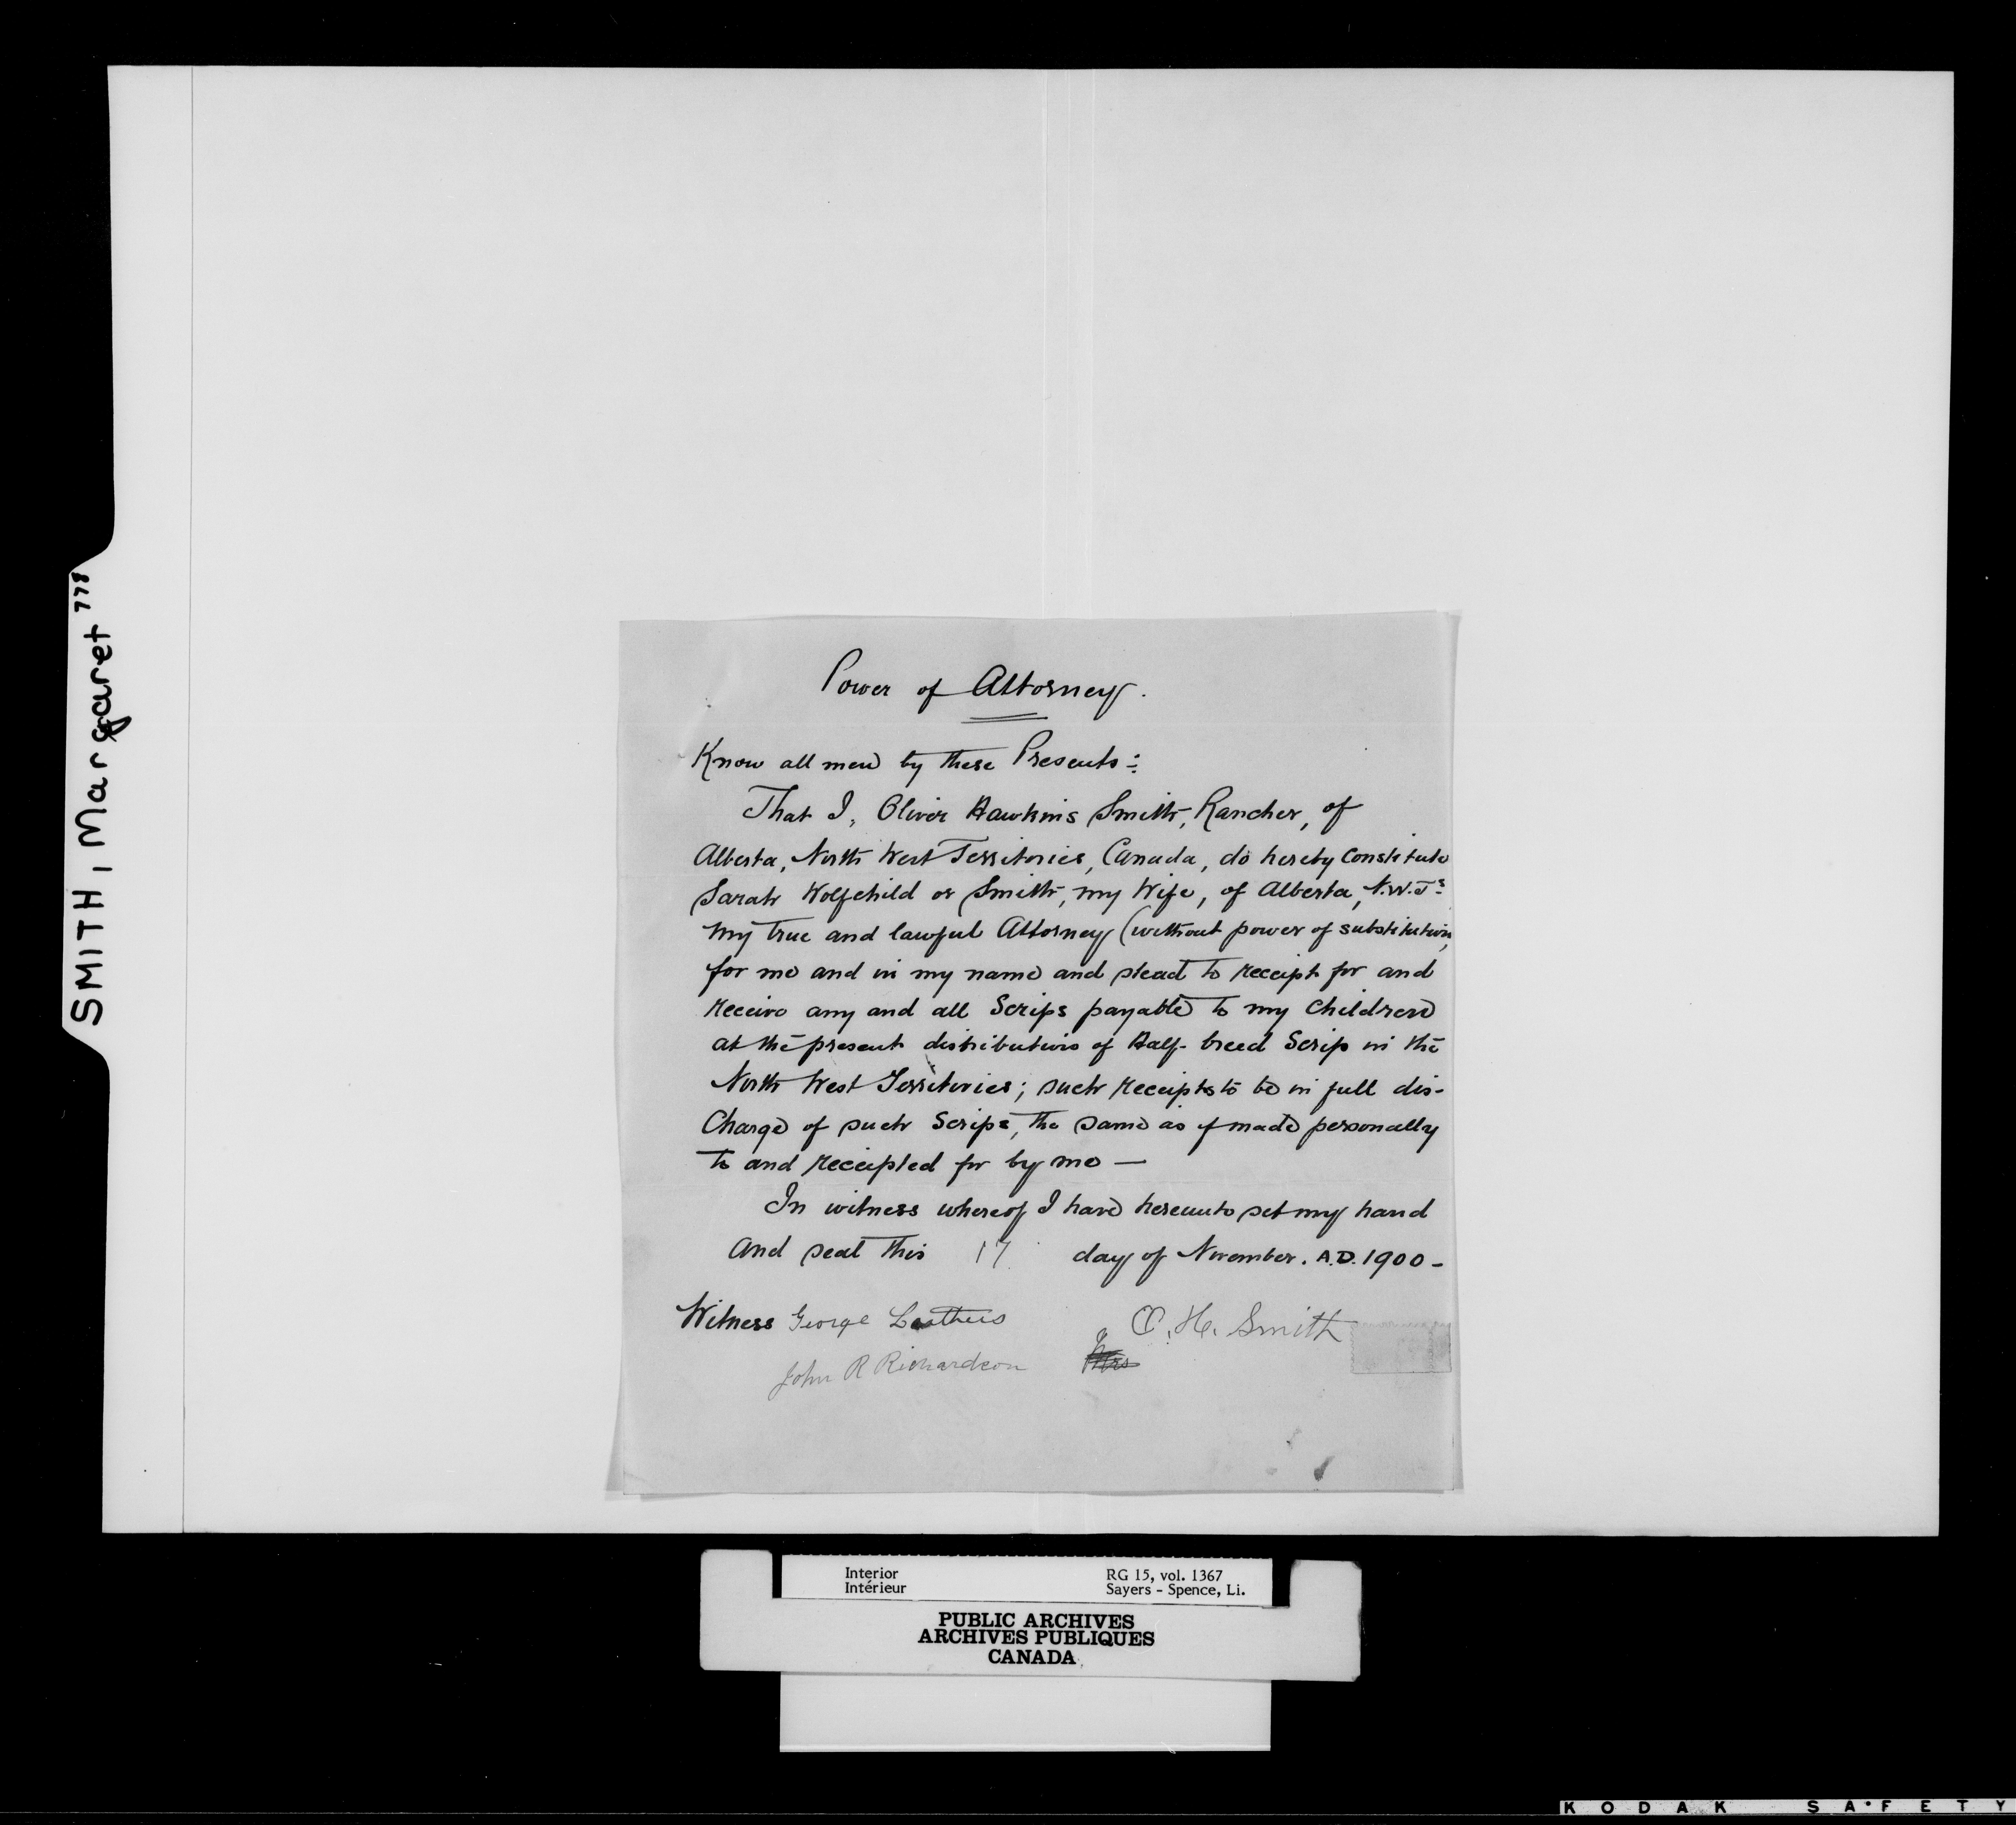 SMITH, Margaret 778
Power of Attorney.
Know all men by these Presents:
That I, Oliver Hawkins Smith, Rancher, of
Alberta, North West Territories, Canada, do hereby Constitute
Sarah Wolfchild or Smith, my Wife, of Alberta, N.W.Ts
my true and lawful Attorney (without power of substitution,
for me and in my name and stead to receipt for and
receive any and all Scrips payable to my Children
at the present distribution of Half-breed Scrip in the
North West Territories; such receipts to be in full dis-
Charge of such Scrips, the same as if made personally
to and receipted for by me —
In witness whereof I have hereunto set my hand
And seal this 17 day of November. A.D. 1900 -
Witness George O. H. Smith
John R Richardson Mrs
Interior RG 15, vol. 1367
Intérieur Sayers - Spence, Li.
PUBLIC ARCHIVES
ARCHIVES PUBLIQUES
CANADA
KODAK SAFETY